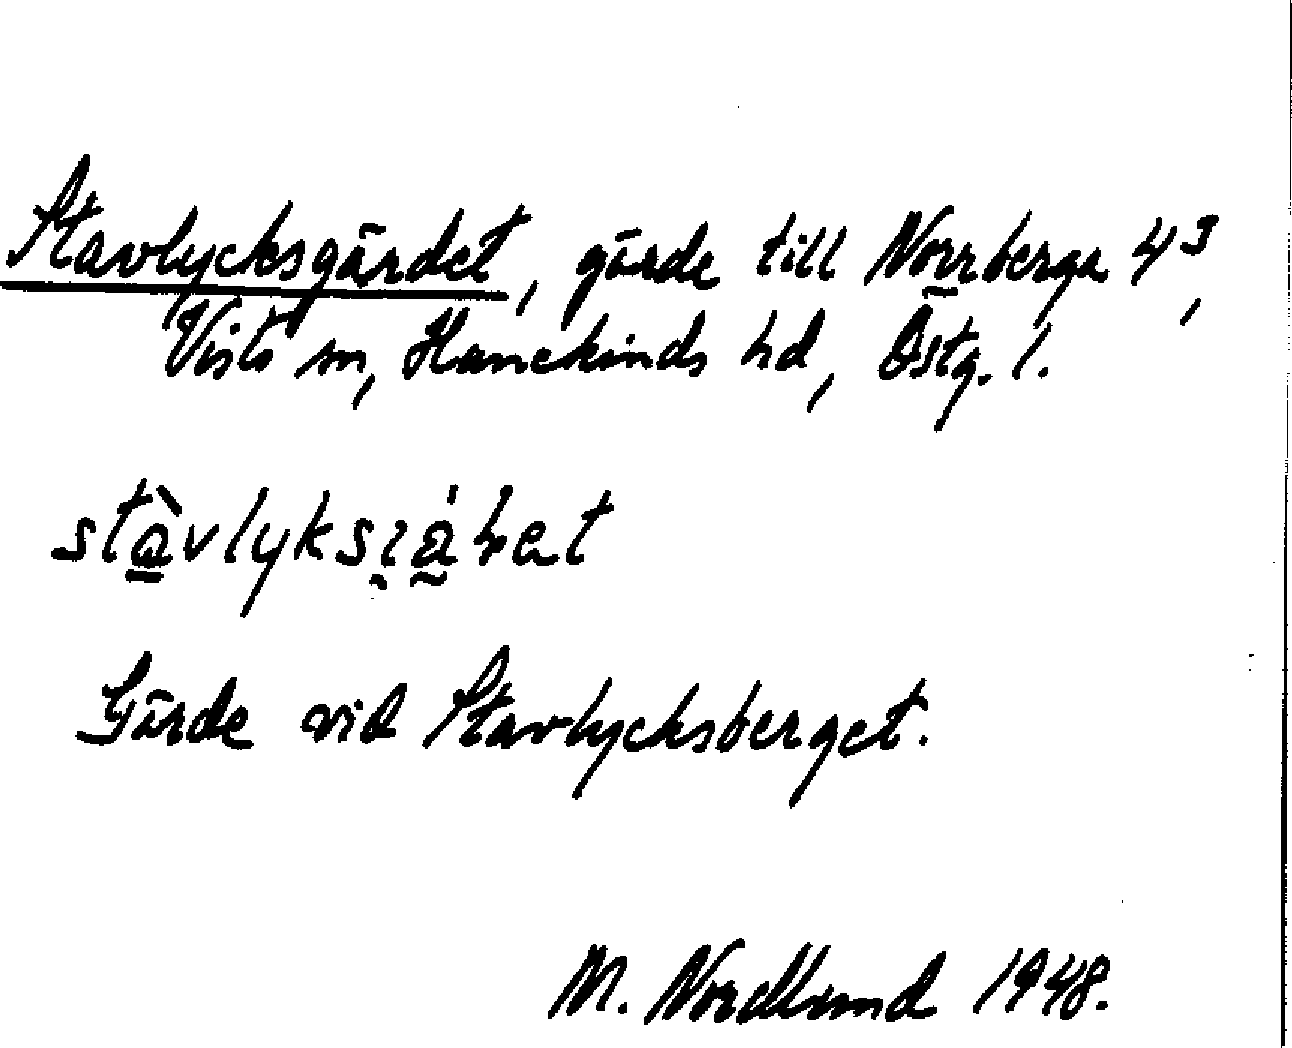 Stavlycksgärdet, gärde till Norrberga 4³,
Vists sn, Hanekinds hd, Östg. l.
Gärde vid Stavlycksberget.
M. Nordlund 1948.